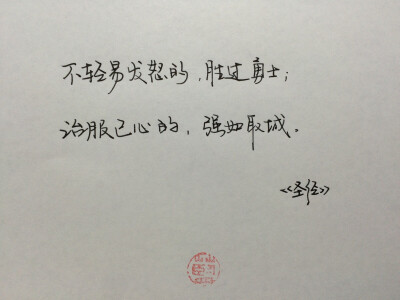 不轻易发怒的，胜过勇士；
治服己心的，强如取城。
《圣经》